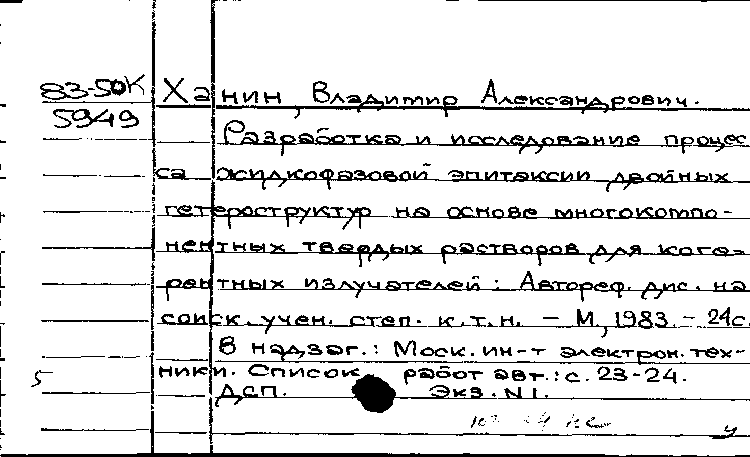 83-50К Ханин, Владимир Александрович.
5949
Разработка и исследование процес
са жидкофазовой эпитаксии двойных
гетероструктур на основе многокомпо-
нентных твердых растворов для коге-
рентных излучателей: Автореф. дис. на
соиск. учен. степ. к.т.н. - М., 1983. - 24с.
В надзаг.: Моск. ин-т электрон. тех-
5 ники. Список работ авт.: с. 23-24.
ДСП. Экз. N1.
у